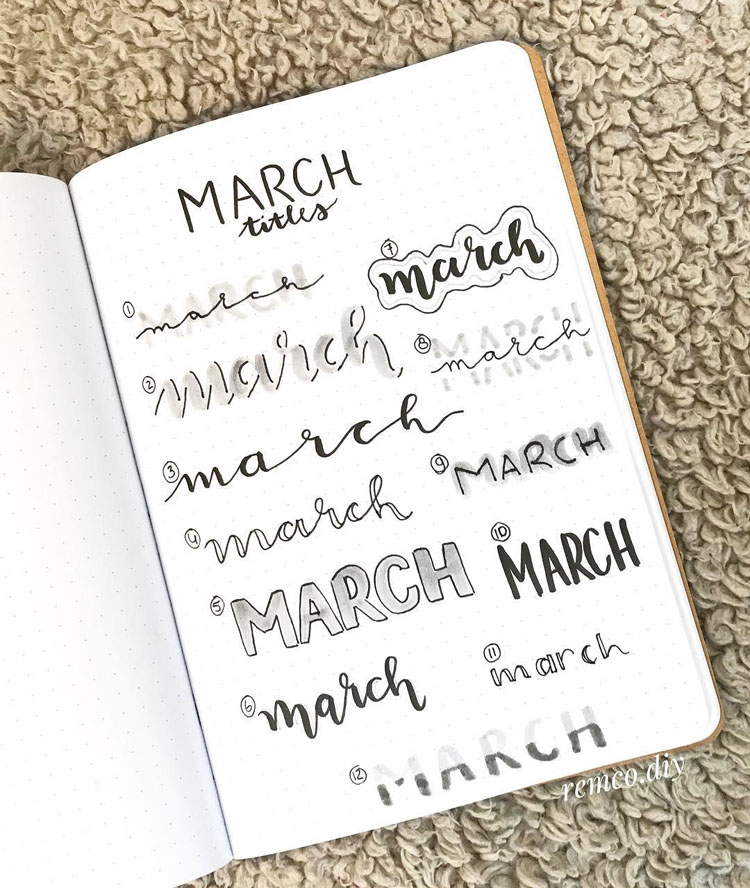 MARCH
titles
① MARCH
march
② march
③ march
④ march
⑤ MARCH
⑥ march
⑦ march
⑧ MARCH
march
⑨ MARCH
⑩ MARCH
⑪ march
⑫ MARCH
remco.diy